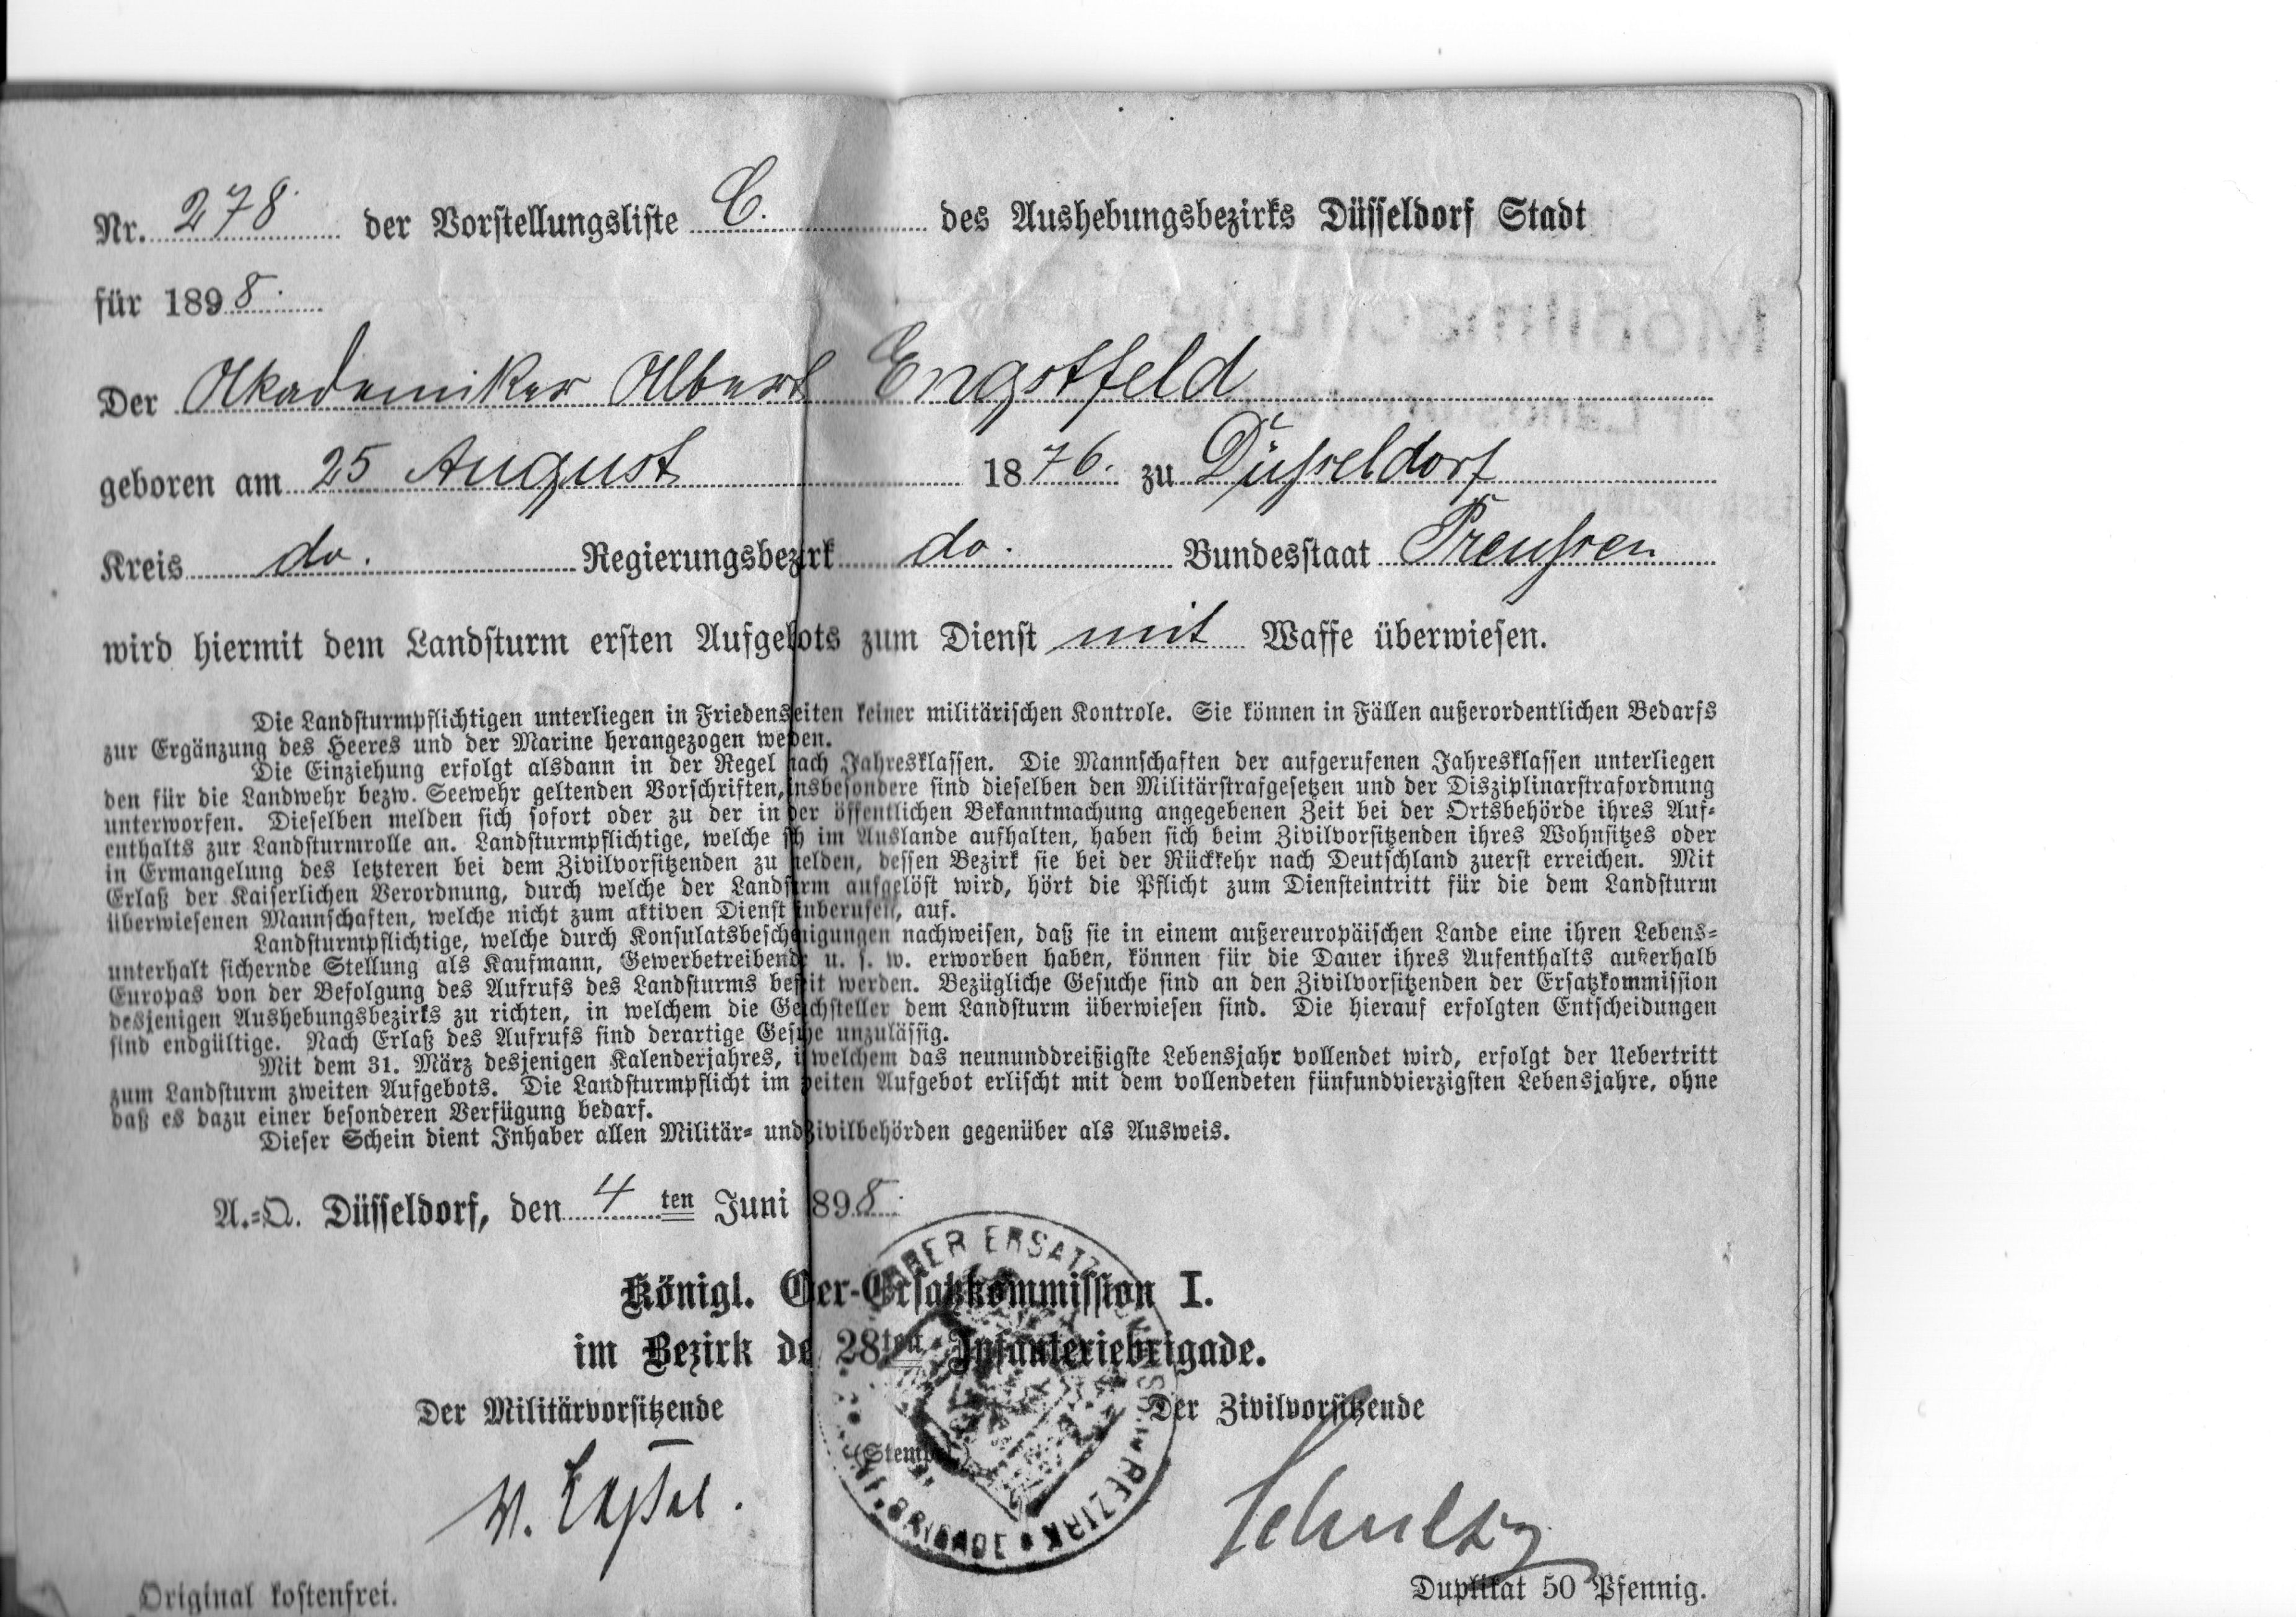 Nr. 278. der Vorstellungsliste C. des Aushebungsbezirks Düsseldorf Stadt
für 1898.
Der Akademiker Albert Engstfeld
geboren am 25 August 1876. zu Düsseldorf
Kreis do. Regierungsbezirk do. Bundesstaat Preussen
wird hiermit dem Landsturm ersten Aufgebots zum Dienst mit Waffe überwiesen.
Die Landsturmpflichtigen unterliegen in Friedenszeiten keiner militärischen Kontrole. Sie können in Fällen außerordentlichen Bedarfs
zur Ergänzung des Heeres und der Marine herangezogen werden.
Die Einziehung erfolgt alsdann in der Regel nach Jahresklassen. Die Mannschaften der aufgerufenen Jahresklassen unterliegen
den für die Landwehr bezw. Seewehr geltenden Vorschriften, insbesondere sind dieselben den Militärstrafgesetzen und der Disziplinarstrafordnung
unterworfen. Dieselben melden sich sofort oder zu der in der öffentlichen Bekanntmachung angegebenen Zeit bei der Ortsbehörde ihres Auf-
enthalts zur Landsturmrolle an. Landsturmpflichtige, welche sich im Auslande aufhalten, haben sich beim Zivilvorsitzenden ihres Wohnsitzes oder
in Ermangelung des letzteren bei dem Zivilvorsitzenden zu melden, dessen Bezirk sie bei der Rückkehr nach Deutschland zuerst erreichen. Mit
Erlaß der Kaiserlichen Verordnung, durch welche der Landsturm aufgelöst wird, hört die Pflicht zum Diensteintritt für die dem Landsturm
überwiesenen Mannschaften, welche nicht zum aktiven Dienst einberufen, auf.
Landsturmpflichtige, welche durch Konsulatsbescheinigungen nachweisen, daß sie in einem außereuropäischen Lande eine ihren Lebens-
unterhalt sichernde Stellung als Kaufmann, Gewerbetreibender u. s. w. erworben haben, können für die Dauer ihres Aufenthalts außerhalb
Europas von der Befolgung des Aufrufs des Landsturms befreit werden. Bezügliche Gesuche sind an den Zivilvorsitzenden der Ersatzkommission
desjenigen Aushebungsbezirks zu richten, in welchem die Gesuchsteller dem Landsturm überwiesen sind. Die hierauf erfolgten Entscheidungen
sind endgültige. Nach Erlaß des Aufrufs sind derartige Gesuche unzulässig.
Mit dem 31. März desjenigen Kalenderjahres, in welchem das neununddreißigste Lebensjahr vollendet wird, erfolgt der Uebertritt
zum Landsturm zweiten Aufgebots. Die Landsturmpflicht im zweiten Aufgebot erlischt mit dem vollendeten fünfundvierzigsten Lebensjahre, ohne
daß es dazu einer besonderen Verfügung bedarf.
Dieser Schein dient Inhaber allen Militär- und Zivilbehörden gegenüber als Ausweis.
A.-O. Düsseldorf, den 4ten Juni 1898.
Königl. Ober-Ersatzkommission I.
im Bezirk der 28ten Infanteriebrigade.
Der Militärvorsitzende Der Zivilvorsitzende
(Stempel)
Schultz
Original kostenfrei. Duplikat 50 Pfennig.